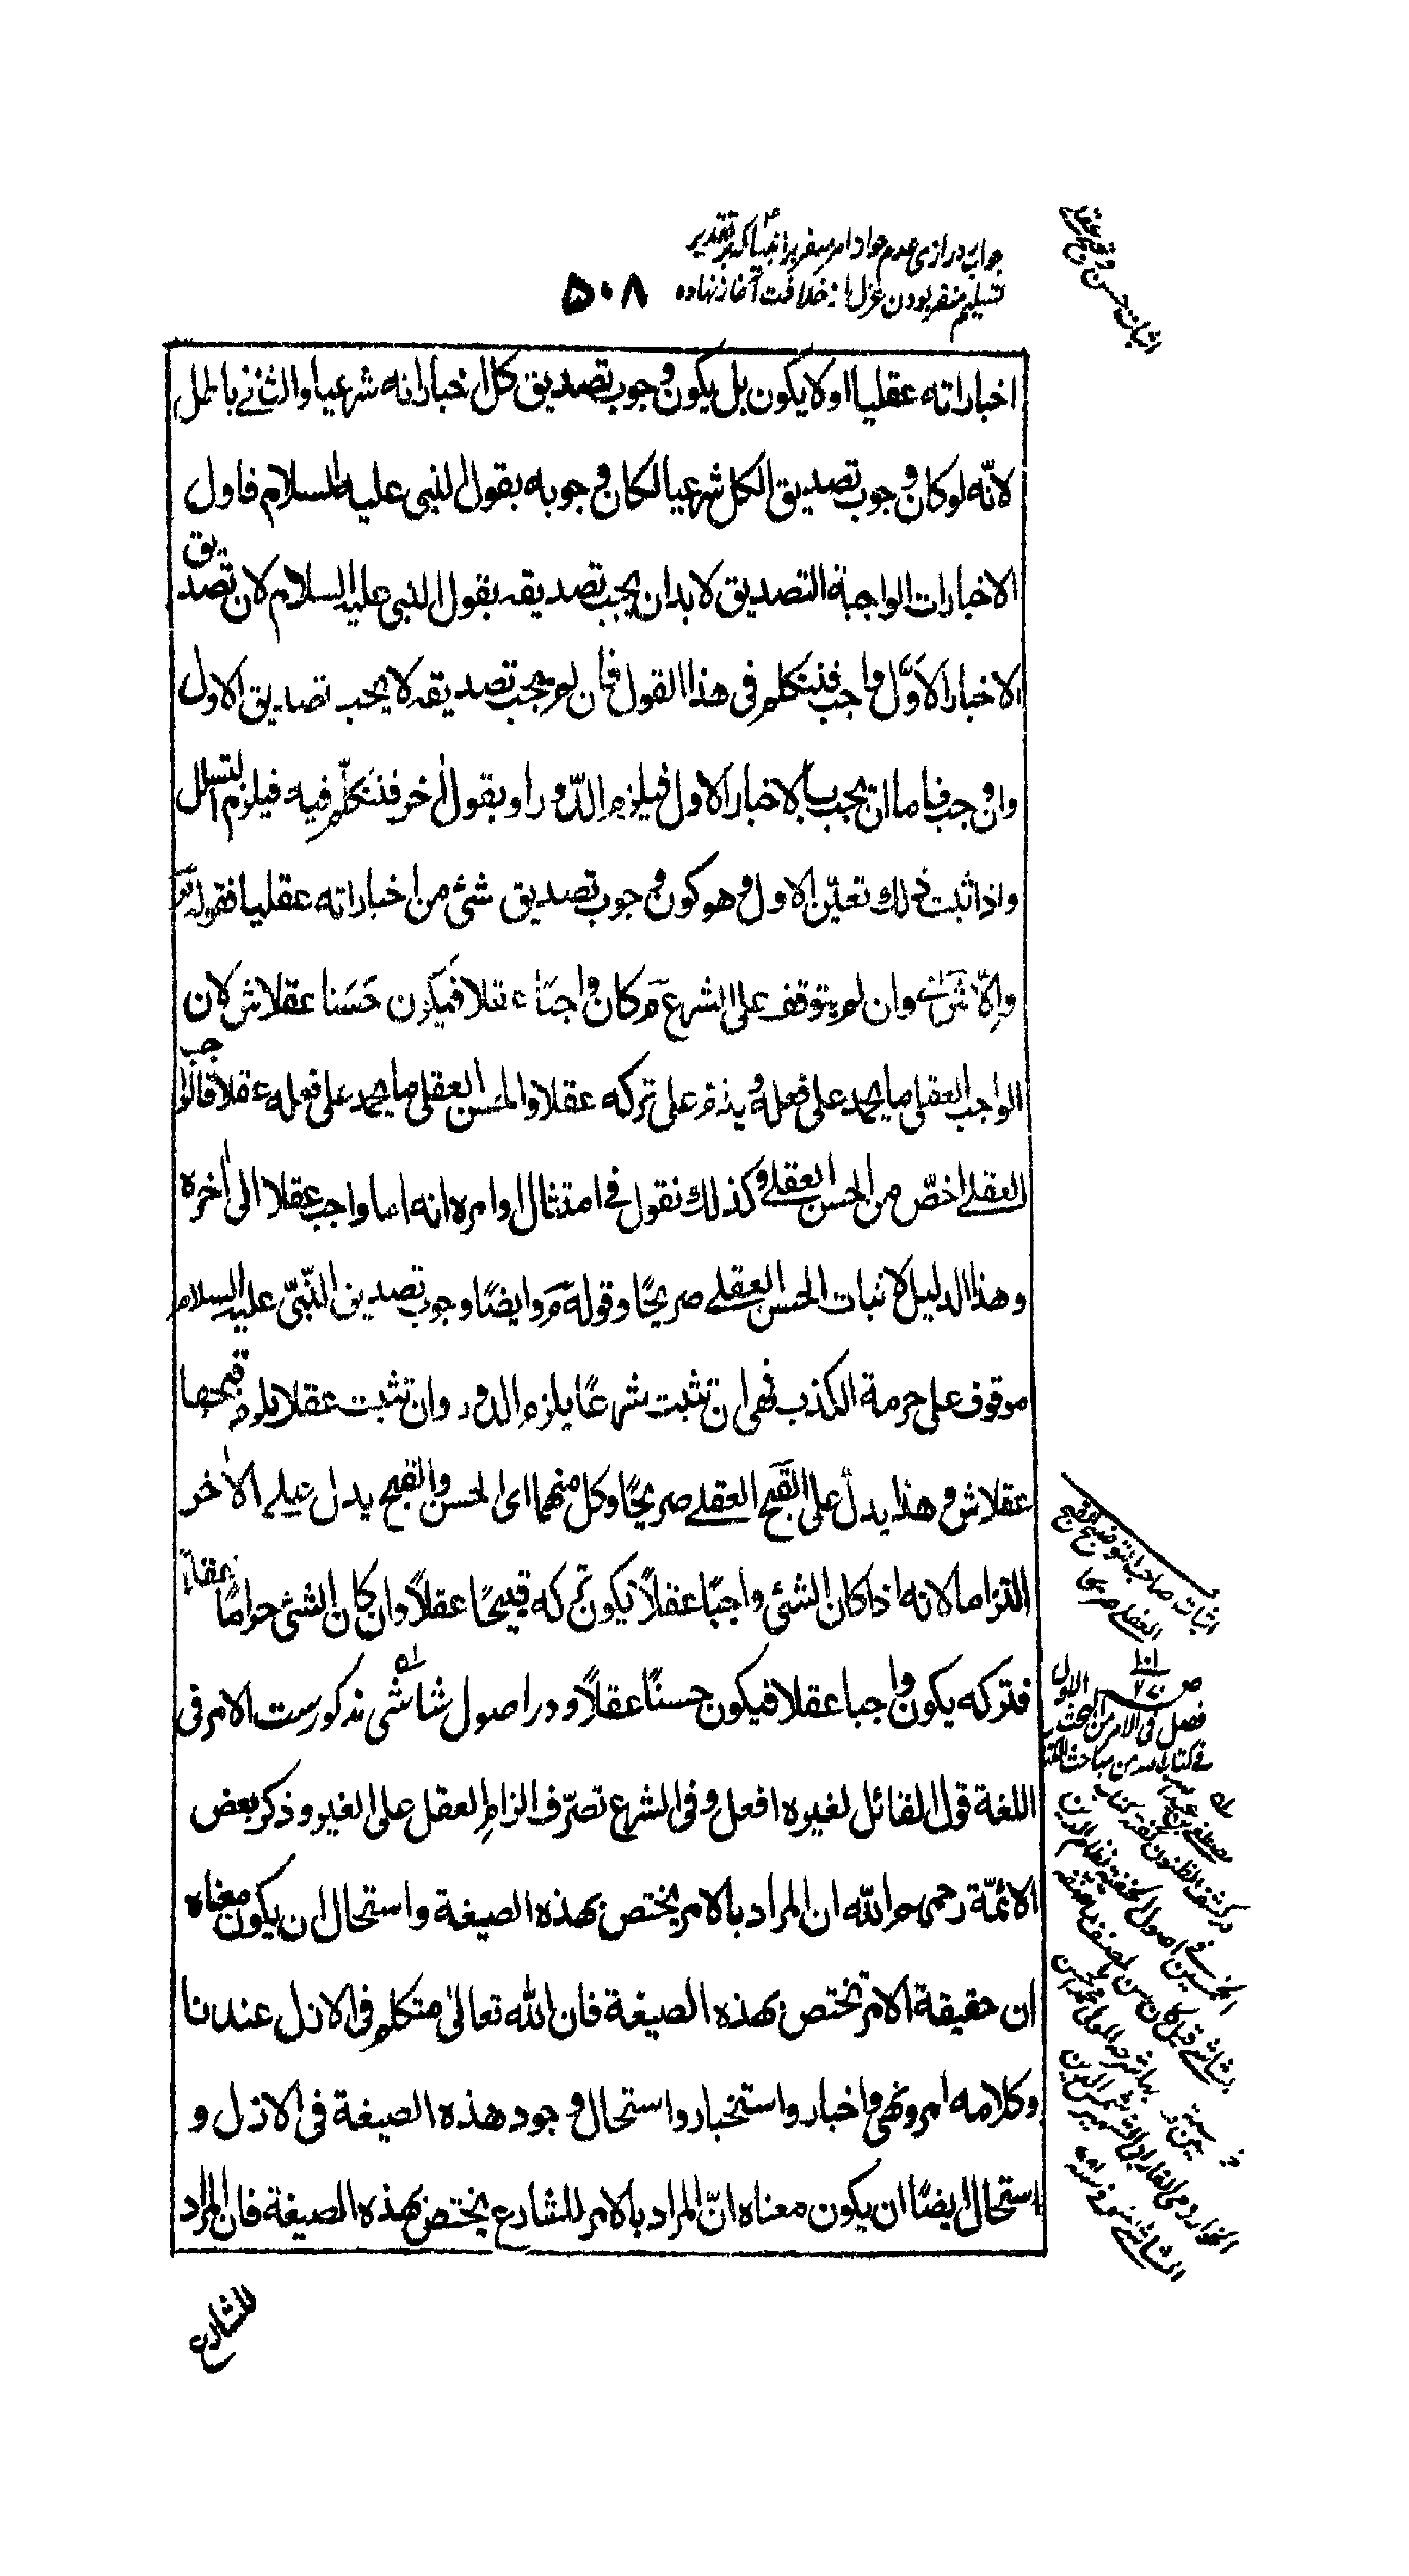 اثبات حسن و قبح عقلی
جواب درازی عدم جواز امر منفر بر انبیا که بر تقدیر
تسلیم منفر بودن عزل از خلافت آغاز نهاده
۵۰۸
اخباراته عقلیا اولا یکون بل یکون وجوب تصدیق کل اخباراته شرعیا والثانی باطل
لانّه لو کان وجوب تصدیق الکل شرعیا لکان وجوبه بقول النبی علیه السلام فاول
الاخبارات الواجبة التصدیق لابد ان یجب تصدیقه بقول النبی علیه السلام لان تصدیق
الاخبار الاوّل واجب فنتکلم فی هذا القول فان لم یجب تصدیقه لا یجب تصدیق الاول
وان وجب فاما ان یجب بالاخبار الاول فیلزم الدّور او بقول اٰخر فنتکلّم فیه فیلزم التسلسل
واذا ثبت ذلك تعیّن الاول وهو کون وجوب تصدیق شئ من اخباراته عقلیا فقوله م
والّا ش ای وان لم یتوقف علی الشرع م کان واجبًا عقلا فیکون حَسَنا عقلا ش لان
الواجب العقلی ما یحمد علی فعله ویذم علی ترکه عقلا والحسن العقلی ما یحمد علی فعله عقلا فالواجب
العقلے اخصّ من الحسن العقلے وکذلك نقول فی امتثال اوامره انه اما واجب عقلا الی اٰخره
وهذا الدلیل لاثبات الحسن العقلے صریحًا وقوله م وایضًا وجوب تصدیق النّبیّ علیه السلام
موقوف علی حرمة الکذب فهی ان تثبت شرعًا یلزم الدور وان تثبت عقلا یلزم قبحها
عقلا ش وهذا یدل علی القبح العقلے صریحًا وکل منهما ای الحسن والقبح یدل علے الاٰخر
التزاما لانه اذا کان الشئ واجبًا عقلاً یکون ترکه قبیحًا عقلاً وان کان الشئ حرامًا عقلاً
فترکه یکون واجبا عقلا فیکون حسنًا عقلاً و در اصول شاشی مذکورست الامر فی
اللغة قول القائل لغیره افعل وفی الشرع تصرّف الزامِ العقل علی الغیر و ذکر بعض
الائمّة رحمهم الله ان المراد بالامر یختص بهذه الصیغة واستحال ان یکون معناه
ان حقیقة الامر تختص بهذه الصیغة فان الله تعالٰی متکلم فی الازل عندنا
وکلامه امر ونهی واخبار واستخبار واستحال وجود هذه الصیغة فی الازل و
استحال ایضًا ان یکون معناه انّ المراد بالامر للشارع یختص بهذه الصیغة فان المراد
للشارع
اثبات صاحب التوضیح القبح
العقلے صریحا
فصل فی الامر من البحث الاول
فے کتاب الله من مباحث
در کشف الظنون گفته کتاب
الخمسین فے اصول الحنفیة لنظام الدین